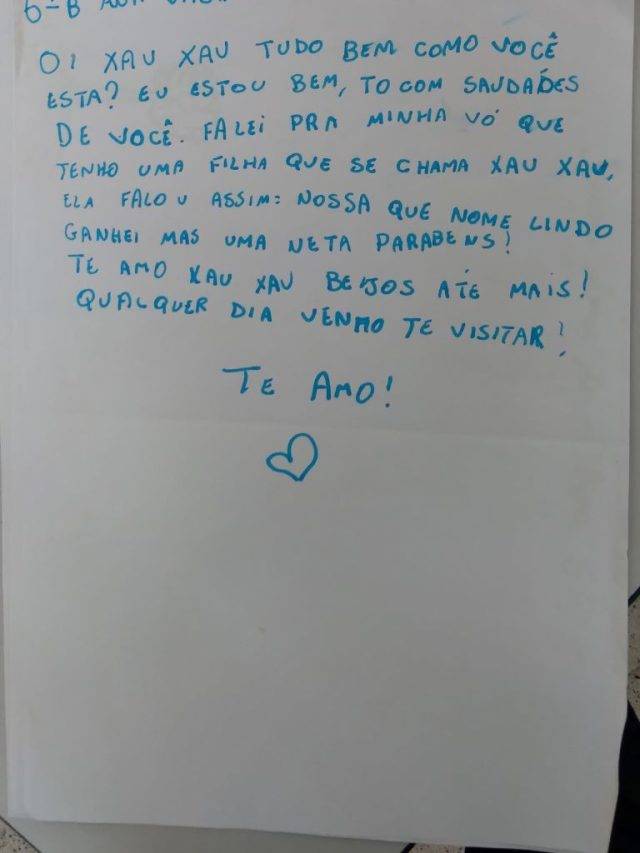 6ª B
OI XAU XAU TUDO BEM COMO VOCÊ
ESTA? EU ESTOU BEM, TO COM SAUDADES
DE VOCÊ. FALEI PRA MINHA VÓ QUE
TENHO UMA FILHA QUE SE CHAMA XAU XAU,
ELA FALOU ASSIM: NOSSA QUE NOME LINDO
GANHEI MAS UMA NETA PARABENS!
TE AMO XAU XAU BEIJOS ATÉ MAIS!
QUALQUER DIA VENHO TE VISITAR!
TE AMO!